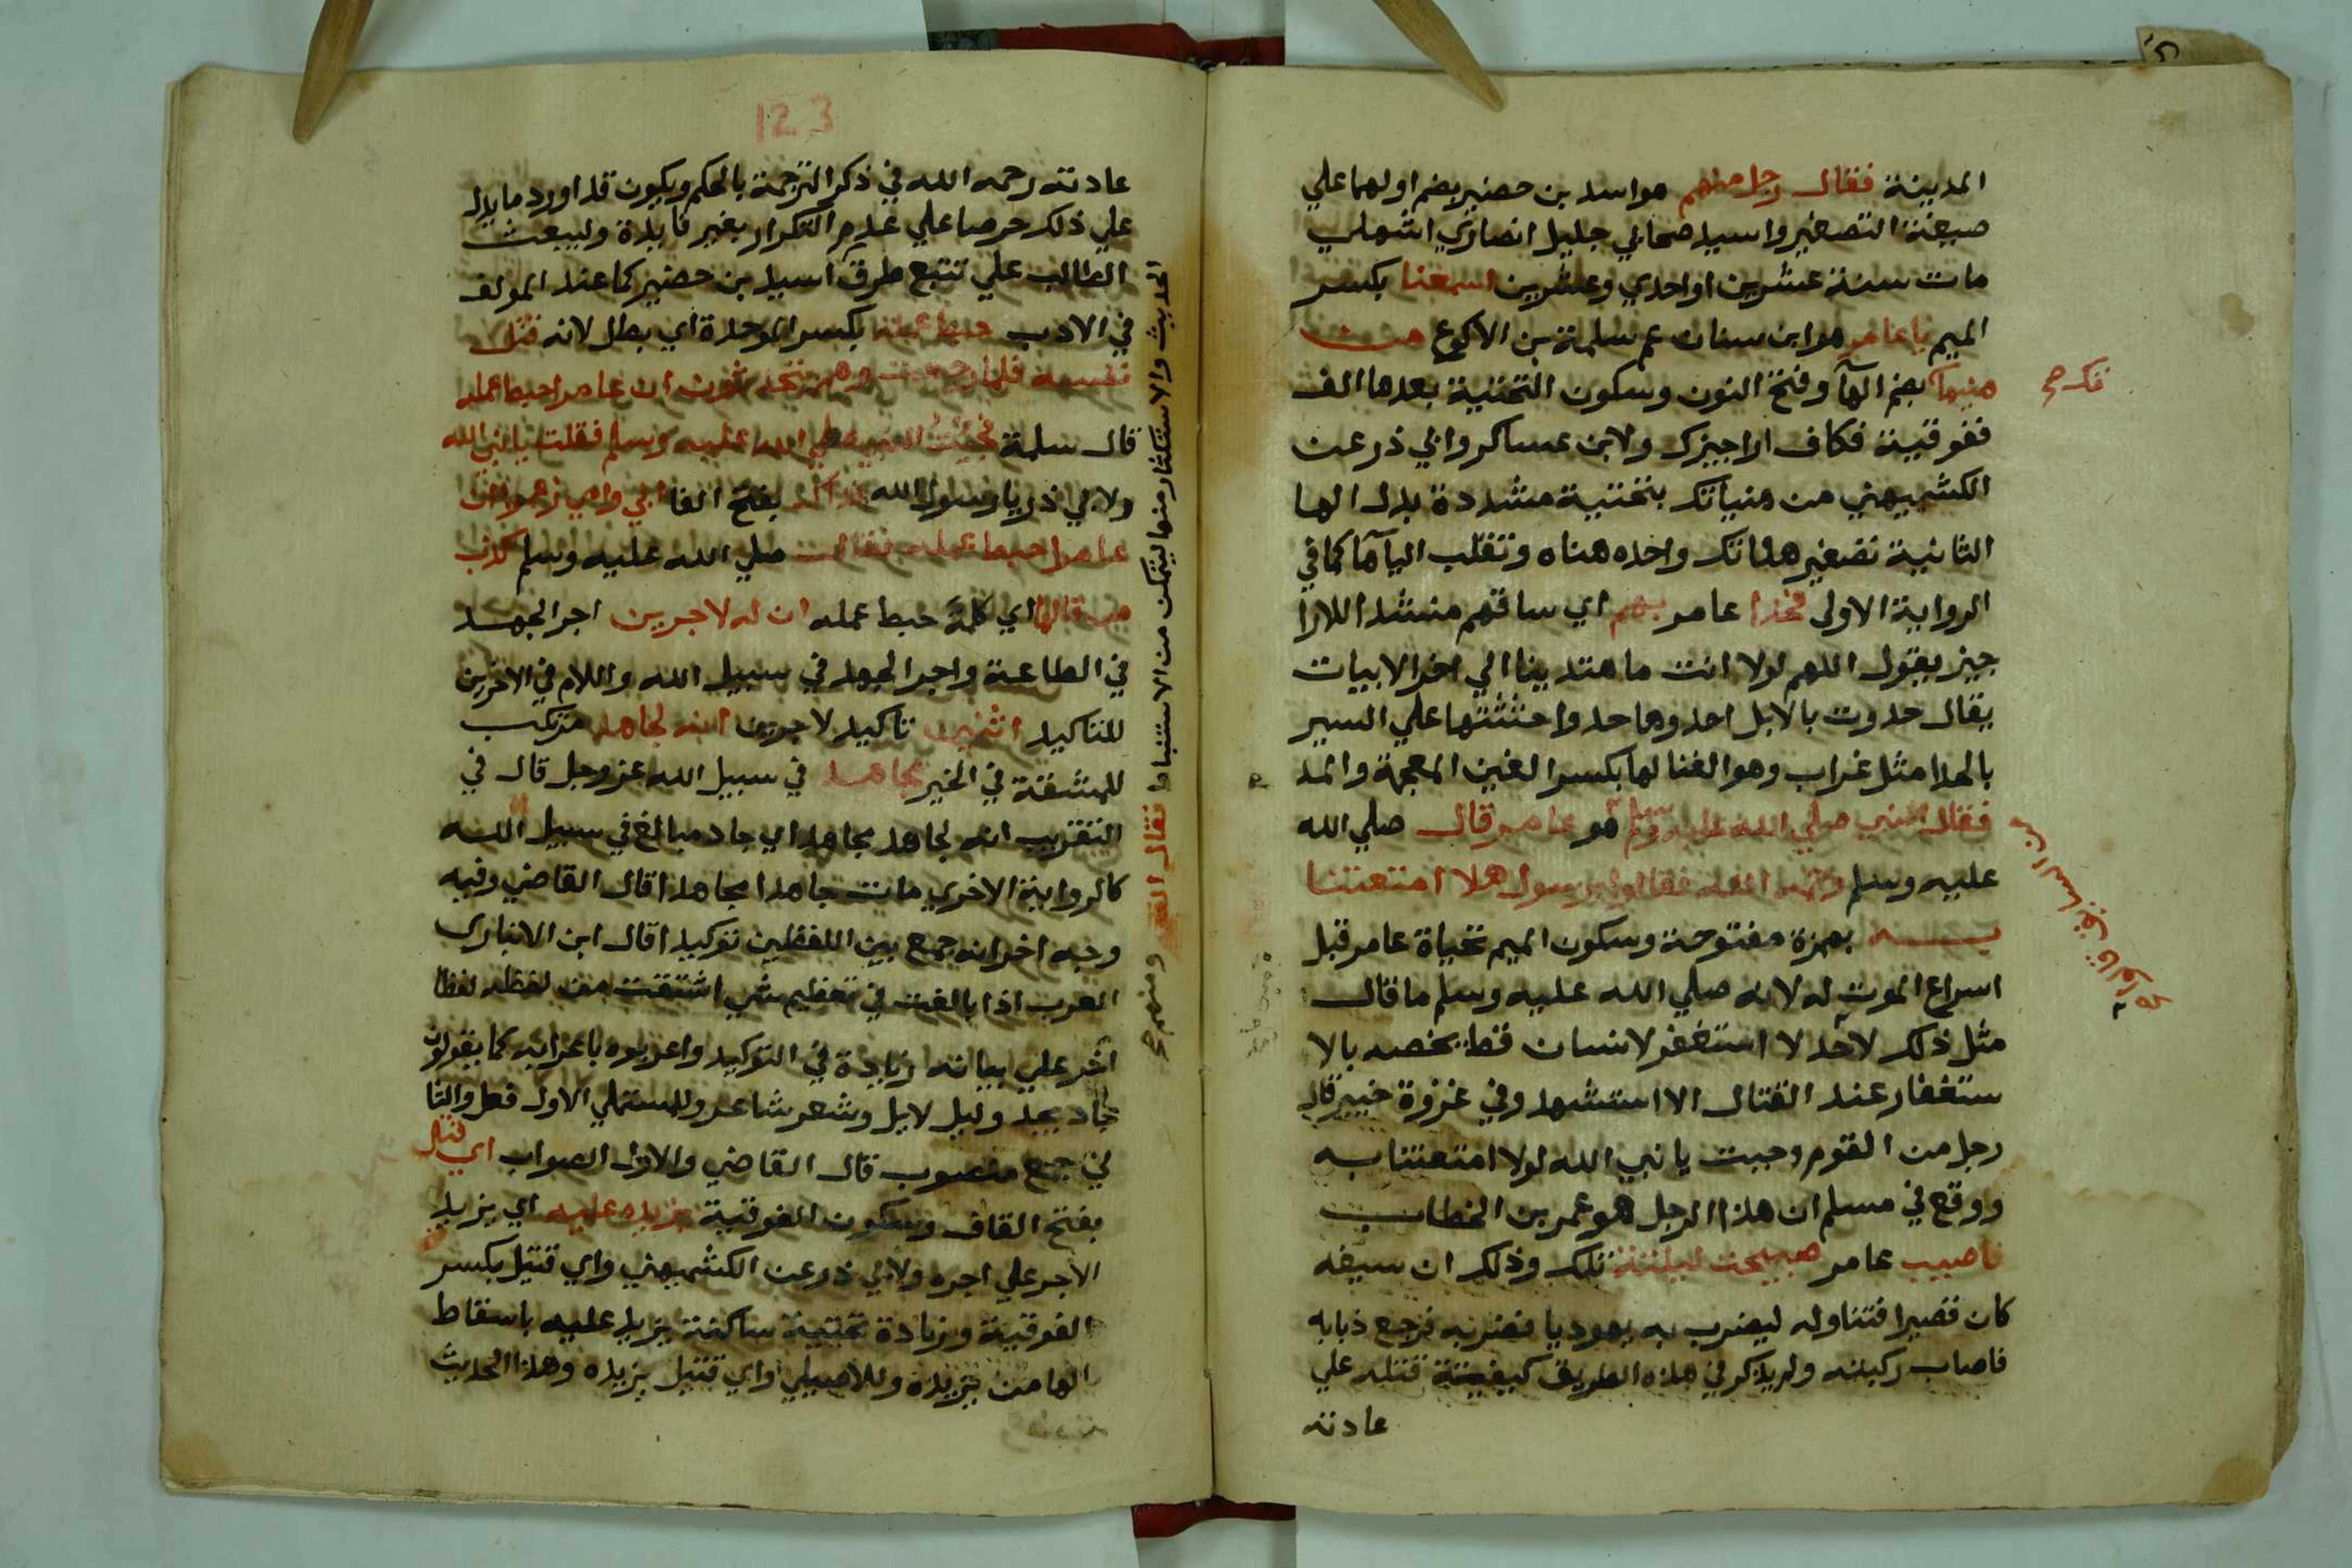 المدينة فقال رجل منهم هو اسد بن حضير بضم اولهما علي
صيغة التصغير واسيد صحابي جليل انصاري اشهلي
مات سنة عشرين او احدي وعشرين اسمعنا بكسر
الميم يا عامر هو ابن سنان عم سلمة بن الاكوع من
هنيها بضم الهآ وفتح النون وسكون التحتية بعدها الف
تك صح
ففوقية فكاف اراجيزك ولابن عساكر وابي ذر عن
الكشميهني من هنياتك بتحتية مشددة بدل الها
الثانية تصغير هناتك واحده هناه وتقلب اليآ هآ كما في
الرواية الاولي فحدا عامر بهم اي ساقهم منشد اللارا
جيز يقول اللهم لولا انت ما هتدينا الي اخر الابيات
يقال حدوت بالابل احدوها حدوا حثثتها علي السير
بالحدا مثل غراب وهو الغنا لها بكسر الغين المعجمة والمد
فقال النبي صلي الله عليه وسلم قو عامر قال صلي الله
من السائق قالوا
عليه وسلم رحمه الله فقالوا يرسول هلا امتعتنا
به بهمزة مفتوحة وسكون الميم بحياة عامر قبل
اسراع الموت له لانه صلي الله عليه وسلم ما قال
مثل ذلك لاحد لا استغفر لانسان قط يخصه بالا
ستغفار عند القتال الا استشهد وفي غزوة خيبر قال
رجل من القوم وجبت يا نبي الله لولا امتعتنا به
ووقع في مسلم ان هذا الرجل هو عمر بن الخطاب
فاصيب عامر صبيحت ليلته تلك وذلك ان سيفه
كان قصيرا فتناوله ليضرب به يهوديا فضربه فرجع ذبابه
فاصاب ركبته ولم يذكر في هذه الطريق كيفية قتله علي
عادته
123
عادته رحمه الله في ذكر الترجمة بالحكم ويكون قد اورد ما يدل
علي ذلك حرصا علي عدم التكرار بغير فايدة وليبعث
الطالب علي تتبع طرق اسيد بن حضير كما عند المولف
في الادب حبط عمله بكسر الموحدة اي بطل لانه قتل
نفسه فلما رجعت وهم يتحدثون ان عامرا حبط عمله
قال سلمة فجئت النبي صلي الله عليه وسلم فقلت يا نبي الله
ولابي ذر يا رسول الله فداك بفتح الفا ابي وامي زعموا ان
عامرا حبط عمله فقال صلي الله عليه وسلم كذب
من قالها اي كلمة حبط عمله ان له لاجرين اجر الجهد
في الطاعة واجر الجهاد في سبيل الله واللام في الاجرين
للتاكيد اثنين تاكيد لاجرين انه لجاهد مرتكب
للمشقة في الخير مجاهد في سبيل الله عز وجل قال في
التقريب انه لجاهد مجاهد اي جاد مبالغ في سبيل الله
كالرواية الاخري مات جاهدا مجاهدا قال القاضي وفيه
وجه اخر انه جمع بين اللفظين توكيدا قال ابن الانباري
العرب اذا بالغت في تعظيم شي اشتقت من لفظه لفظا
اخر علي بيانه زيادة في التوكيد واعربوه باعرابه كما يقولون
جاد مجد وليل لايل وشعر شاعر وللمستملي الاول فعل والثا
ني جمع منصوب قال القاضي والاول الصواب اي قتل
بفتح القاف وسكون الفوقية يزيده عليه اي يزيد
الاجر علي اجره ولابي ذر عن الكشميهني واي قتيل بكسر
الفوقية وزيادة تحتية ساكنة يزيد عليه باسقاط
الها من يزيده وللاصيلي واي قتيل يزيده وهذا الحديث
الحديث والاستكثار منها ليتمكن من الاستنباط فقال ومنهم صح